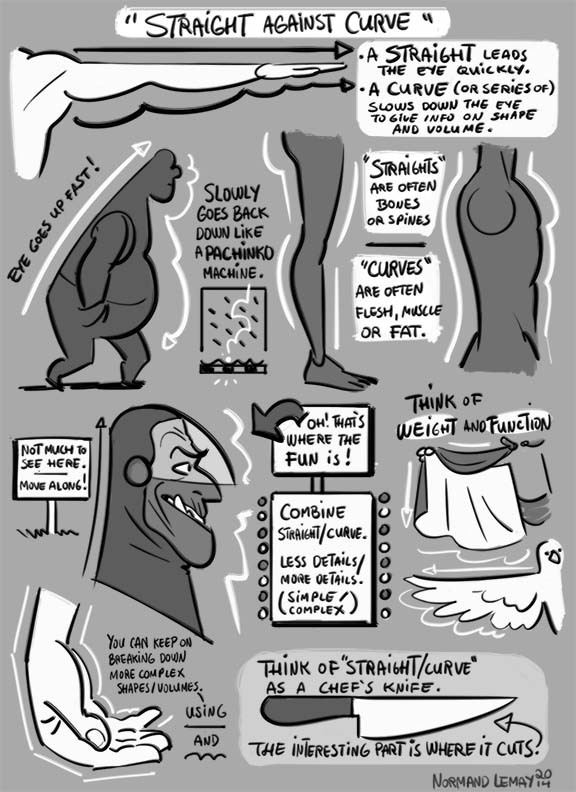 "STRAIGHT AGAINST CURVE"
• A STRAIGHT LEADS
THE EYE QUICKLY.
• A CURVE (OR SERIES OF)
SLOWS DOWN THE EYE
TO GIVE INFO ON SHAPE
AND VOLUME.
EYE GOES UP FAST!
SLOWLY
GOES BACK
DOWN LIKE
A PACHINKO
MACHINE.
"STRAIGHTS"
ARE OFTEN
BONES
OR SPINES
"CURVES"
ARE OFTEN
FLESH, MUSCLE
OR FAT.
NOT MUCH TO
SEE HERE.
MOVE ALONG!
OH! THAT'S
WHERE THE
FUN IS!
COMBINE
STRAIGHT/CURVE.
LESS DETAILS/
MORE DETAILS.
(SIMPLE/
COMPLEX)
THINK OF
WEIGHT AND FUNCTION
YOU CAN KEEP ON
BREAKING DOWN
MORE COMPLEX
SHAPES/VOLUMES.
USING
AND
THINK OF "STRAIGHT/CURVE"
AS A CHEF'S KNIFE.
THE INTERESTING PART IS WHERE IT CUTS!
NORMAND LEMAY 2014